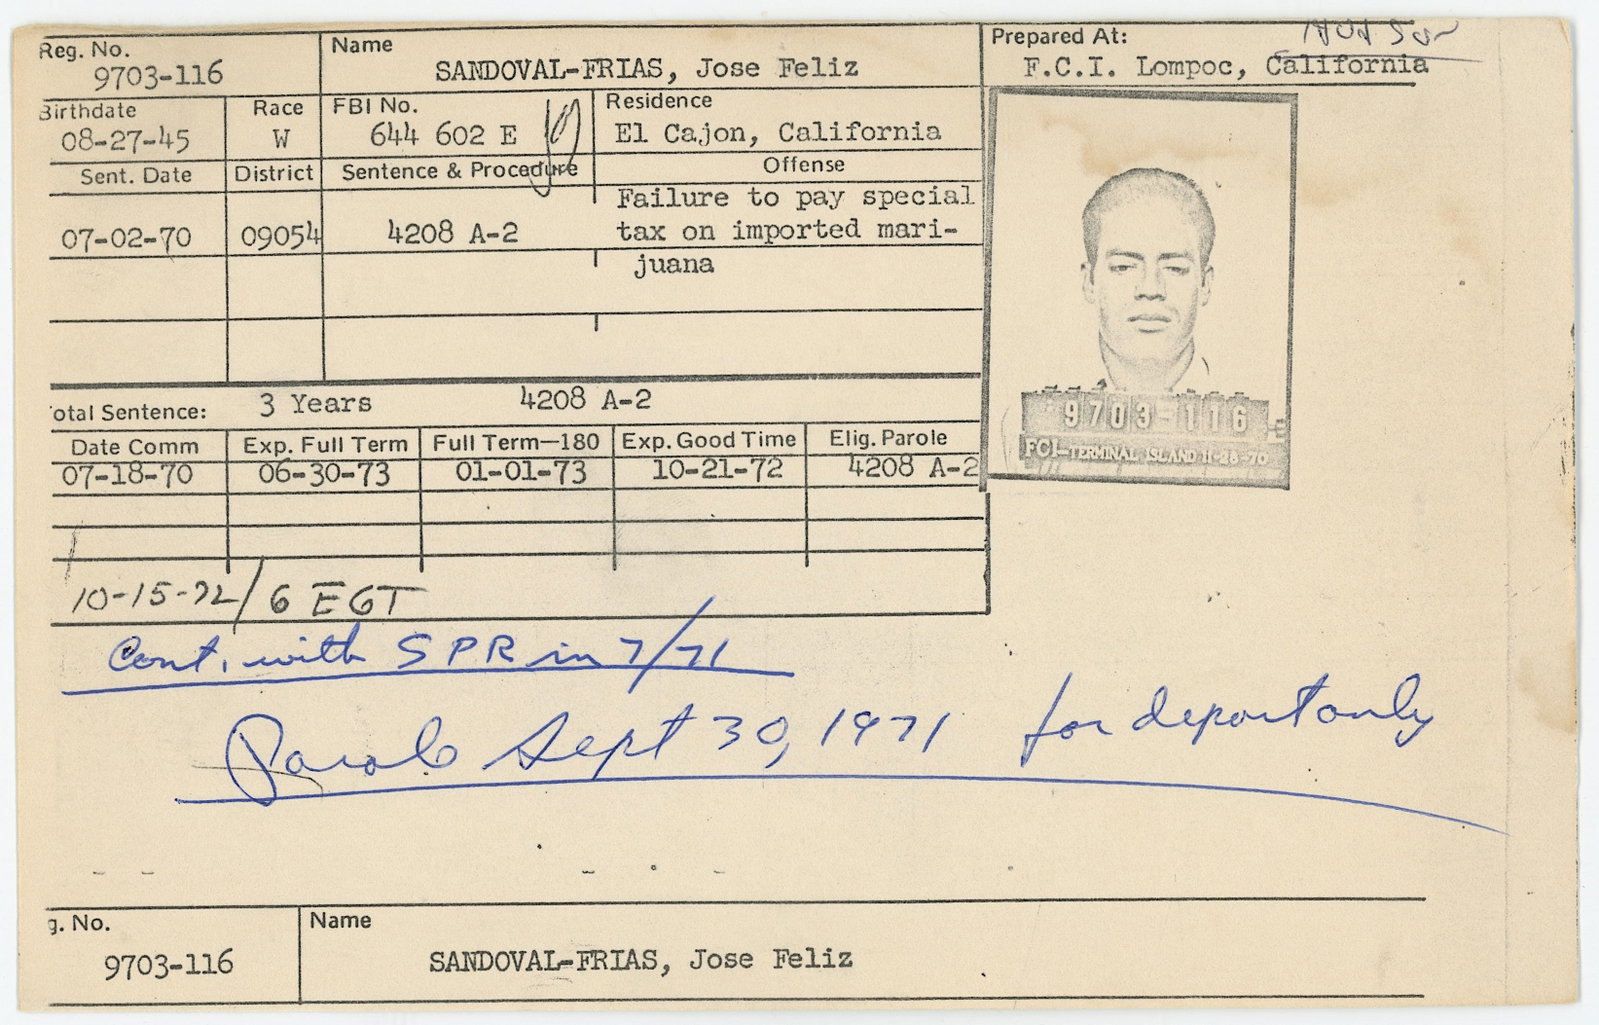 Reg. No. Name Prepared At:
9703-116 SANDOVAL-FRIAS, Jose Feliz F.C.I. Lompoc, California
Birthdate Race FBI No. Residence
08-27-45 W 644 602 E El Cajon, California
Sent. Date District Sentence & Procedure Offense
Failure to pay special
07-02-70 09054 4208 A-2 tax on imported mari-
juana
otal Sentence: 3 Years 4208 A-2
Date Comm Exp. Full Term Full Term—180 Exp. Good Time Elig. Parole
07-18-70 06-30-73 01-01-73 10-21-72 4208 A-2
9703-116
FCI-TERMINAL ISLAND 11-28-70
10-15-72/6 EGT
Cont. with SPR in 7/71
Parole Sept 30, 1971 for deport only
g. No. Name
9703-116 SANDOVAL-FRIAS, Jose Feliz